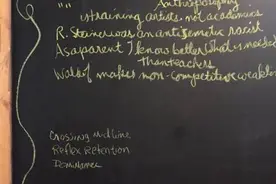 "" Anthroposophy
is training artists, not academics
R. Steiner was an anti Semetic racist
As a parent I know better what is needed
than teachers
Waldorf makes non-competitive weakl
Crossing Midline
Reflex Retention
Dominance